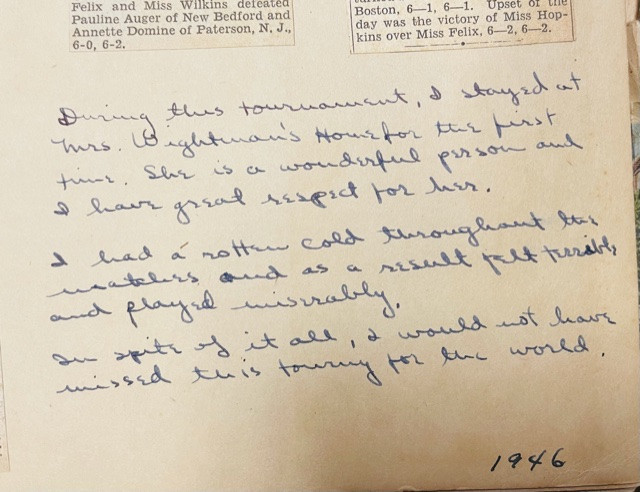 Felix and Miss Wilkins defeated
Pauline Auger of New Bedford and
Annette Domine of Paterson, N. J.,
6-0, 6-2.
Boston, 6—1, 6—1. Upset of the
day was the victory of Miss Hop-
kins over Miss Felix, 6—2, 6—2.
During this tournament, I stayed at
Mrs. Wightman's Home for the first
time. She is a wonderful person and
I have great respect for her.
I had a rotten cold throughout the
matches and as a result felt terrible
and played miserably.
In spite of it all, I would not have
missed this tourny for the world.
1946